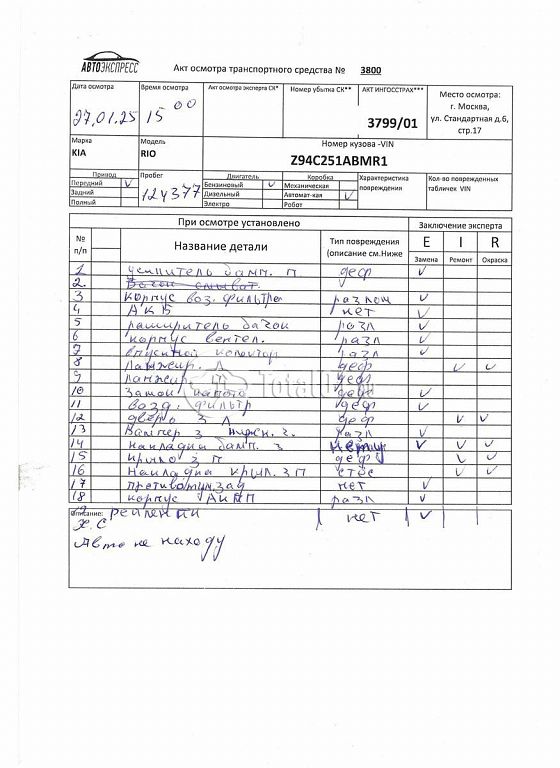 АВТОЭКСПРЕСС
Акт осмотра транспортного средства № 3800
Дата осмотра Время осмотра Акт осмотра эксперта СК* Номер убытка СК** АКТ ИНГОССТРАХ*** Место осмотра:
27.01.25 15 00 3799/01 г. Москва, ул. Стандартная д.6, стр.17
Марка Модель Номер кузова -VIN
KIA RIO Z94C251ABMR1
Привод Пробег Двигатель Коробка Характеристика повреждения Кол-во поврежденных табличек VIN
Передний V 124377 Бензиновый V Механическая
Задний Дизельный Автомат-кая V
Полный Электро Робот
При осмотре установлено Заключение эксперта
№ п/п Название детали Тип повреждения (описание см.Ниже E I R
Замена Ремонт Окраска
1 усилитель бамп. П деф V
2. Бачок омыват. V
3 корпус воз. фильтра разлом V
4 АКБ нет V
5 расширитель бачок разл V
6 корпус вентел. разл V
7 впускной колектор разл V
8 Ланжир. Л деф V V
9 ланжир П деф
10 Замок капота деф V
11 возд. фильтр деф V
12 дверь З Л деф V V
13 Бампер З нижн. ч. разл V
14 накладки бамп. З V V V
15 крыло З П деф V V
16 Накладка крыл. З П V V
17 противотум. зад нет V
18 корпус АКПП разл V
Описание: рейлинги нет V
Х.С
Авто не на ходу
Total